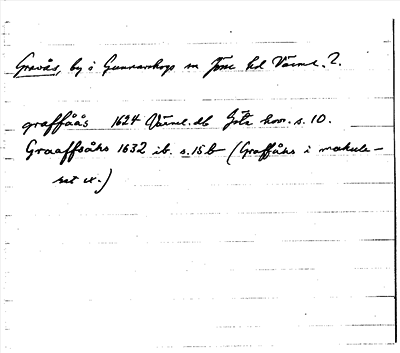 Gravås, by i Gunnarskogs sn Jösse hd Värml. 2.
graffåås 1624 Värml. db Göta hovr. s. 10.
Graaffsåhs 1632 ib. s. 15b (Graffåhs i makule-
rat ex.)